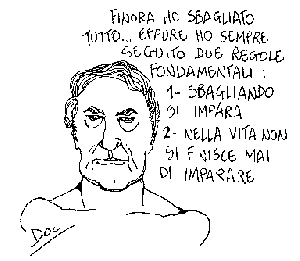 FINORA HO SBAGLIATO
TUTTO... EPPURE HO SEMPRE
SEGUITO DUE REGOLE
FONDAMENTALI:
1- SBAGLIANDO
SI IMPARA
2- NELLA VITA NON
SI FINISCE MAI
DI IMPARARE
DOC